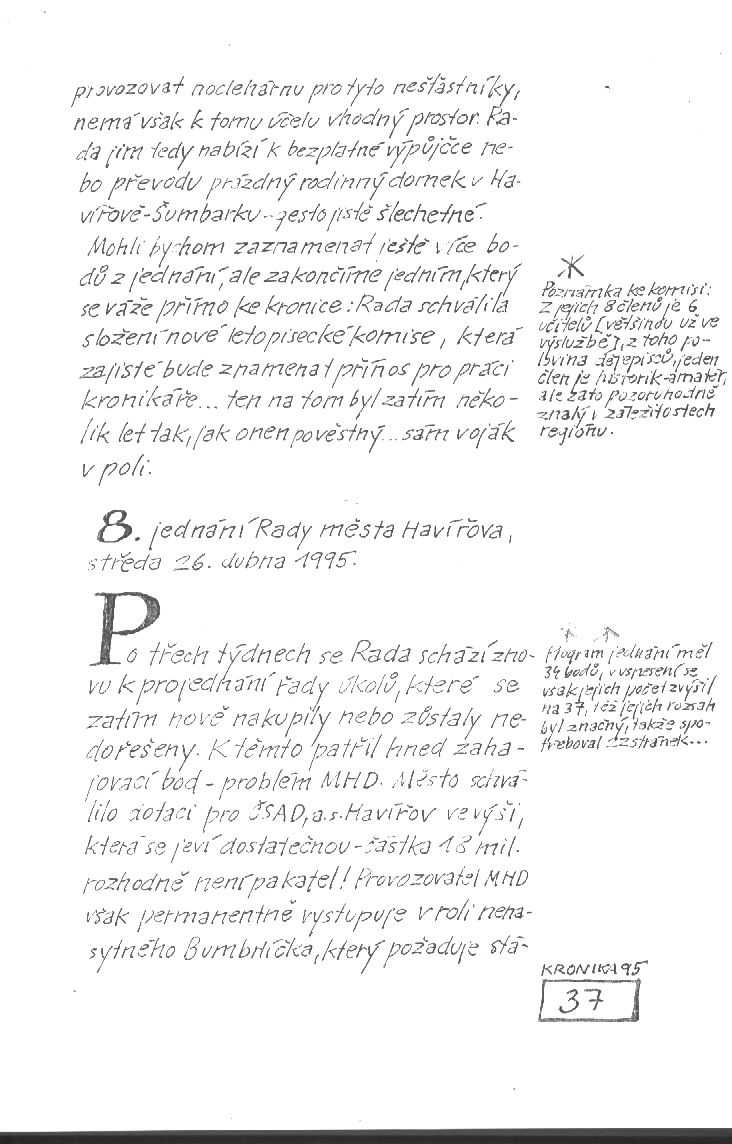 provozovat noclehárnu pro tyto nešťastníky,
nemá však k tomu účelu vhodný prostor. Ra-
da jim tedy nabízí k bezplatné výpůjčce ne-
bo převodu prázdný rodinný domek v Ha-
vířově-Šumbarku - gesto jistě šlechetné.
Mohli bychom zaznamenat ještě více bo-
dů z jednání, ale zakončíme jedním, který
se váže přímo ke kronice: Rada schválila
složení nové letopisecké komise, která
zajisté bude znamenat přínos pro práci
kronikáře... ten na tom byl zatím něko-
lik let tak, jak onen pověstný... sám voják
v poli.
Poznámka ke komisi:
Z jejich 8 členů je 6
učitelů [většinou už ve
výslužbě], z toho po-
lovina dějepisců, jeden
člen je historik-amatér,
ale zato pozoruhodně
znalý v záležitostech
regionu.
8. jednání Rady města Havířova,
středa 26. dubna 1995.
Po třech týdnech se Rada schází zno-
vu k projednání řady úkolů, které se
zatím nově nakupily nebo zůstaly ne-
dořešeny. K těmto patřil hned zaha-
jovací bod - problém MHD. Město schvá-
lilo dotaci pro ČSAD, a.s. Havířov ve výši,
která se jeví dostatečnou - částka 18 mil.
rozhodně není pakatel! Provozovatel MHD
však permanentně vystupuje v roli nena-
sytného Bumbrlíčka, který požaduje stá-
Program jednání měl
34 bodů, v usnesení se
však jejich počet zvýšil
na 37, též jejich rozsah
byl značný, takže spo-
třeboval 22 stránek...
KRONIKA 95
37